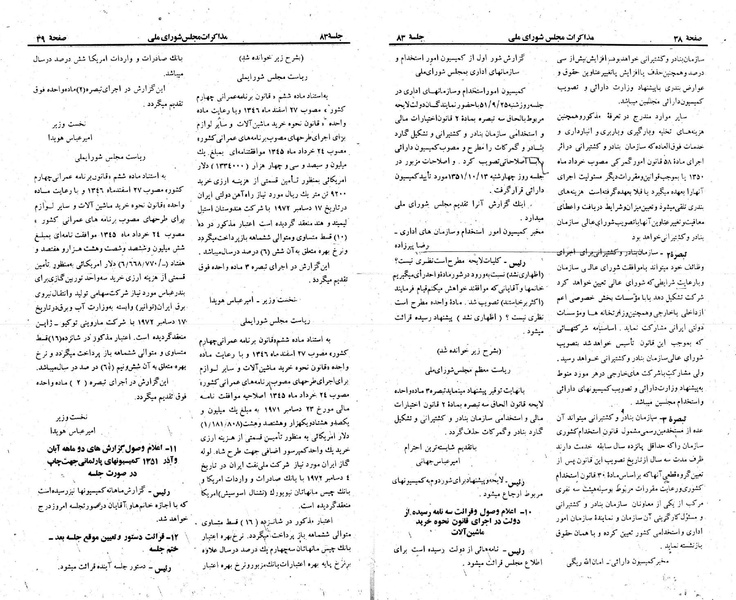 صفحهٔ ۳۸
مذاکرات مجلس شورای ملی
جلسهٔ ۸۳
سازمان بنادر و کشتیرانی خواهد بود. افزایش بیش از سی
درصد و همچنین حذف یا افزایش یا تغییر عناوین حقوق و
عوارض بندری با پیشنهاد وزارت دارائی و تصویب
کمیسیون دارائی مجلسین میباشد.
سایر موارد مندرج در تعرفهٔ مذکور و همچنین
هزینه‌های تخلیه و بارگیری و باربری و انبارداری و
خدمات فوق‌العاده که سازمان بنادر و کشتیرانی در اثر
اجرای مادهٔ ۵۸ قانون امور گمرکی مصوب خرداد ماه
۱۳۵۰ یا بموجب قوانین و مقررات دیگر مسئولیت اجرای
آنها را بعهده میگیرد یا قبلا بعهده گرفته است هزینه‌های
بندری تلقی میشود و تعیین میزان و شرایط دریافت و اعطای
معافیت و تغییر عناوین آنها با تصویب شورای عالی سازمان
بنادر و کشتیرانی خواهد بود
تبصره ۲ - سازمان بنادر و کشتیرانی برای اجرای
وظائف خود میتواند با موافقت شورای عالی سازمان
و با رعایت شرایطی که شورای عالی تعیین خواهد کرد
شرکت تشکیل دهد یا با مؤسسات بخش خصوصی اعم
از داخلی یا خارجی و همچنین وزارتخانه‌ها و مؤسسات
دولتی ایرانی مشارکت نماید. اساسنامه شرکتهائی
که بموجب این قانون تأسیس خواهد شد بتصویب
شورای عالی سازمان بنادر و کشتیرانی خواهد رسید.
ولی مشارکت با شرکت‌های خارجی در هر مورد منوط
به پیشنهاد وزارت دارائی و تصویب کمیسیونهای دارائی
مجلسین میباشد.
تبصره ۳ - سازمان بنادر و کشتیرانی میتواند آن
عده از مستخدمین رسمی مشمول قانون استخدام کشوری
سازمان را که حداقل پانزده سال سابقه خدمت دارند
ظرف مدت سه سال از تاریخ تصویب این قانون پس از
تعیین گروه قطعی آنها که بر اساس مادهٔ ۳۰ قانون استخدام
کشوری و رعایت مقررات مربوط بوسیله هیئت سه نفری
مرکب از یکی از معاونان سازمان بنادر و کشتیرانی
و مسئول کارگزینی آن سازمان و نمایندهٔ سازمان امور
اداری و استخدامی کشور تعیین کرده و با همان حقوق
بازنشسته نماید.
مخبر کمیسیون دارائی - امان‌الله ریگی
گزارش شور اول از کمیسیون امور استخدام و
سازمانهای اداری به مجلس شورای ملی
کمیسیون امور استخدام و سازمانهای اداری در
جلسه روز شنبه ۵۱/۹/۲۵ با حضور نمایندگان دولت لایحه
مربوط بالحاق سه تبصره بمادهٔ ۲ قانون اختیارات مالی
و استخدامی سازمان بنادر و کشتیرانی و تشکیل گارد
بنادر و گمرکات را مطرح و مصوب کمیسیون دارائی
با اصلاحاتی تصویب کرد. و اصلاحات مزبور در
جلسه روز چهارشنبه ۱۳۵۱/۱۰/۱۳ مورد تأیید کمیسیون
دارائی قرار گرفت.
اینک گزارش آنرا تقدیم مجلس شورای ملی
میدارد.
مخبر کمیسیون امور استخدام و سازمان های اداری -
رضا پیرزاده
رئیس - کلیات لایحه مطرح است نظری نیست؟
(اظهاری نشد) نسبت به ورود در شور ماده‌ای رأی میگیریم
خانمها و آقایانی که موافقند خواهش میکنم قیام فرمایند
(اکثر برخاستند) تصویب شد. مادهٔ واحده مطرح است
نظری نیست؟ (اظهاری نشد) پیشنهاد رسیده قرائت
میشود.
(بشرح زیر خوانده شد)
ریاست معظم مجلس شورای ملی
بانهایت توقیر پیشنهاد مینماید تبصره ۳ ماده واحده
لایحه قانون الحاق سه تبصره بمادهٔ ۲ قانون اختیارات
مالی و استخدامی سازمان بنادر و کشتیرانی و تشکیل
گارد بنادر و گمرکات حذف گردد.
با تقدیم شایسته‌ترین احترام
امیرعباس جهانی
رئیس - لایحه و پیشنهاد برای شور دوم به کمیسیونهای
مربوط ارجاع میشود.
۱۰- اعلام وصول و قرائت سه نامه رسیده از
دولت در اجرای قانون نحوه خرید
ماشین‌آلات
رئیس - نامه‌هائی از دولت رسیده است برای
اطلاع مجلس قرائت میشود.
جلسهٔ ۸۳
مذاکرات مجلس شورای ملی
صفحهٔ ۳۹
(بشرح زیر خوانده شد)
ریاست مجلس شورایملی
به استناد مادهٔ ششم قانون برنامه عمرانی چهارم
کشور، مصوب ۲۷ اسفند ماه ۱۳۴۶ و با رعایت مادهٔ
واحده «قانون نحوه خرید ماشین‌آلات و سایر لوازم
برای اجرای طرحهای مصوب برنامه‌های عمرانی کشور»
مصوب ۲۴ خرداد ماه ۱۳۴۵ موافقتنامه‌ای بمبلغ یک
میلیون و سیصد و سی و چهار هزار (۱۳۳۴۰۰۰) دلار
امریکائی به منظور تأمین قسمتی از هزینه ارزی خرید
۹۲۰۰ تن متر یک ریل مورد نیاز راه آهن دولتی ایران
در تاریخ ۱۷ دسامبر ۱۹۷۲ با شرکت هندوستان استیل
لیمیتد و هند منعقد گردیده است اعتبار مذکور در ده
(۱۰) قسط متساوی و متوالی ششماهه بازپرداخت میگردد
و نرخ بهره متعلق به آن شش (۶) درصد در سال میباشد.
این گزارش در اجرای تبصره ۳ ماده واحده فوق
تقدیم میگردد.
نخست وزیر - امیرعباس هویدا
ریاست مجلس شورایملی
به استناد ماده ششم قانون برنامه عمرانی چهارم
کشور» مصوب ۲۷ اسفند ماه ۱۳۴۶ و با رعایت ماده
واحده «قانون نحوه خرید ماشین آلات و سایر لوازم
برای اجرای طرحهای مصوب برنامه‌های عمرانی کشور»
مصوب ۲۴ خرداد ماه ۱۳۴۵ اصلاحیه موافقت نامه
مالی مورخ ۲۳ دسامبر ۱۹۷۱ به مبلغ یک میلیون و
یکصد و هشتاد و یکهزار و هشتصد و هشت (۱/۱۸۱/۸۰۸)
دلار امریکائی به منظور تأمین قسمتی از هزینه ارزی
خرید یک واحد کمپرسور اضافی جهت طرح شاه لوله
گاز ایران مورد نیاز شرکت ملی نفت ایران در تاریخ
۴ دسامبر ۱۹۷۲ با بانک صادرات و واردات امریکا و
بانک چیس مانهاتان نیویورک (نشنال اسوسیشن) امریکا
منعقد گردیده است.
اعتبار مذکور در شانزده (۱۶) قسط متساوی و
متوالی ششماهه باز پرداخت میگردد. نرخ بهره اعتبار
بانک چیس مانهاتان سه چهارم یک درصد در سال علاوه
بر نرخ پایه بهره اعتبارات بانک مزبور و نرخ بهره اعتبار
بانک صادرات و واردات امریکا شش درصد در سال
میباشد.
این گزارش در اجرای تبصره (۲) ماده واحده فوق
تقدیم میگردد.
نخست وزیر
امیرعباس هویدا
ریاست مجلس شورایملی
به استناد ماده ششم قانون برنامه عمرانی چهارم
کشور» مصوب ۲۷ اسفند ماه ۱۳۴۶ و با رعایت ماده
واحده «قانون نحوه خرید ماشین آلات و سایر لوازم
برای طرحهای مصوب برنامه‌های عمرانی کشور»
مصوب ۲۴ خرداد ماه ۱۳۴۵ موافقت نامه‌ای بمبلغ
شش میلیون و ششصد و شصت و هشت هزار و هفتصد و
هفتاد (۶/۶۶۸/۷۷۰) دلار امریکائی به منظور تأمین
قسمتی از هزینه ارزی خرید سه واحد توربین گازی برای
بندرعباس مورد نیاز شرکت سهامی تولید و انتقال نیروی
برق ایران (توانیر) وابسته به وزارت آب و برق در تاریخ
۱۷ دسامبر ۱۹۷۲ با شرکت ماروبنی توکیو - ژاپن
منعقد گردیده است. اعتبار مذکور در شانزده (۱۶) قسط
متساوی و متوالی ششماهه باز پرداخت میگردد و نرخ
بهره متعلق به آن شش و نیم (۶٫۵) در صد در سال میباشد.
این گزارش در اجرای تبصره (۲) ماده واحده
فوق تقدیم میگردد.
نخست وزیر
امیرعباس هویدا
۱۱- اعلام وصول گزارش های دو ماهه آبان
و آذر ۱۳۵۱ کمیسیونهای پارلمانی جهت چاپ
در صورت جلسه
رئیس - گزارش ماهانه کمیسیونها نیز رسیده است
که با اجازه خانم‌ها و آقایان در صورتجلسه امروز درج
خواهد شد.
۱۲- قرائت دستور و تعیین موقع جلسه بعد -
ختم جلسه
رئیس - دستور جلسه آینده قرائت میشود.